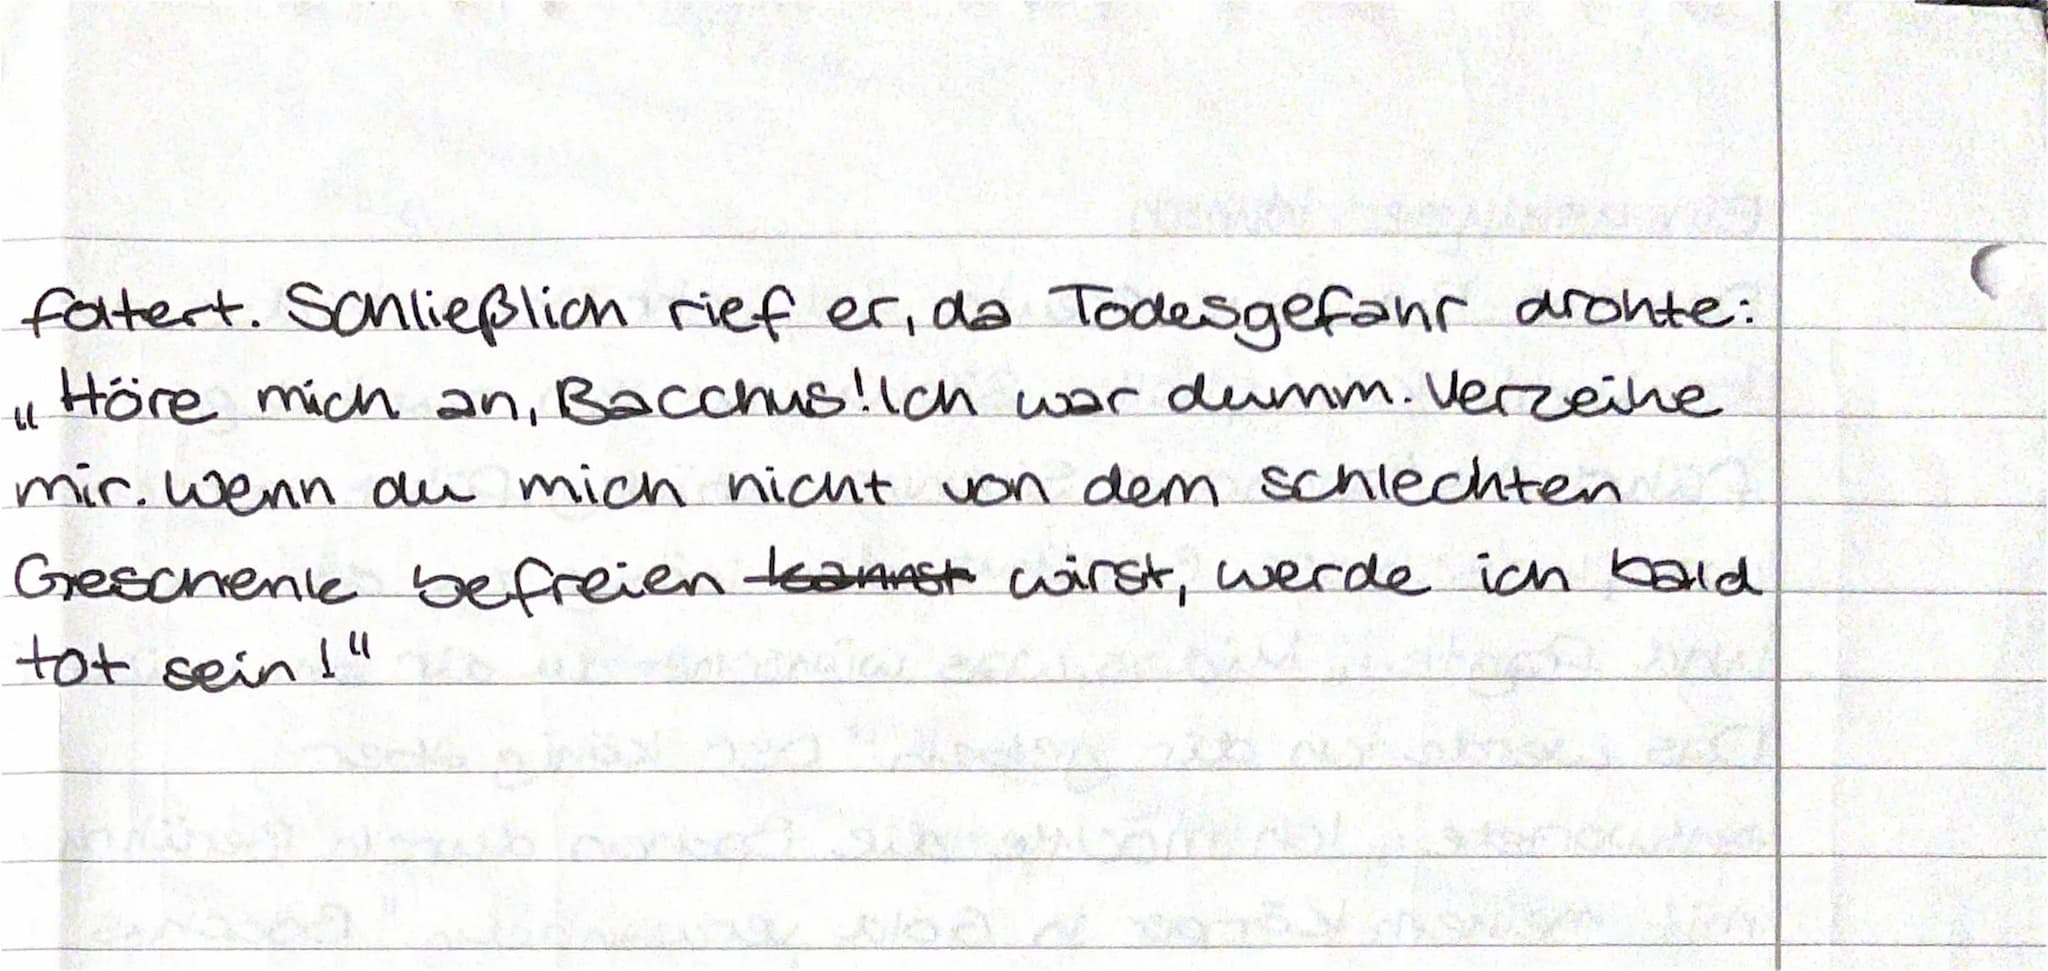 foltert. Schließlich rief er, da Todesgefahr drohte:
„Höre mich an, Bacchus! Ich war dumm. Verzeihe
mir. Wenn du mich nicht von dem schlechten
Geschenk befreien kannst wirst, werde ich bald
tot sein!“